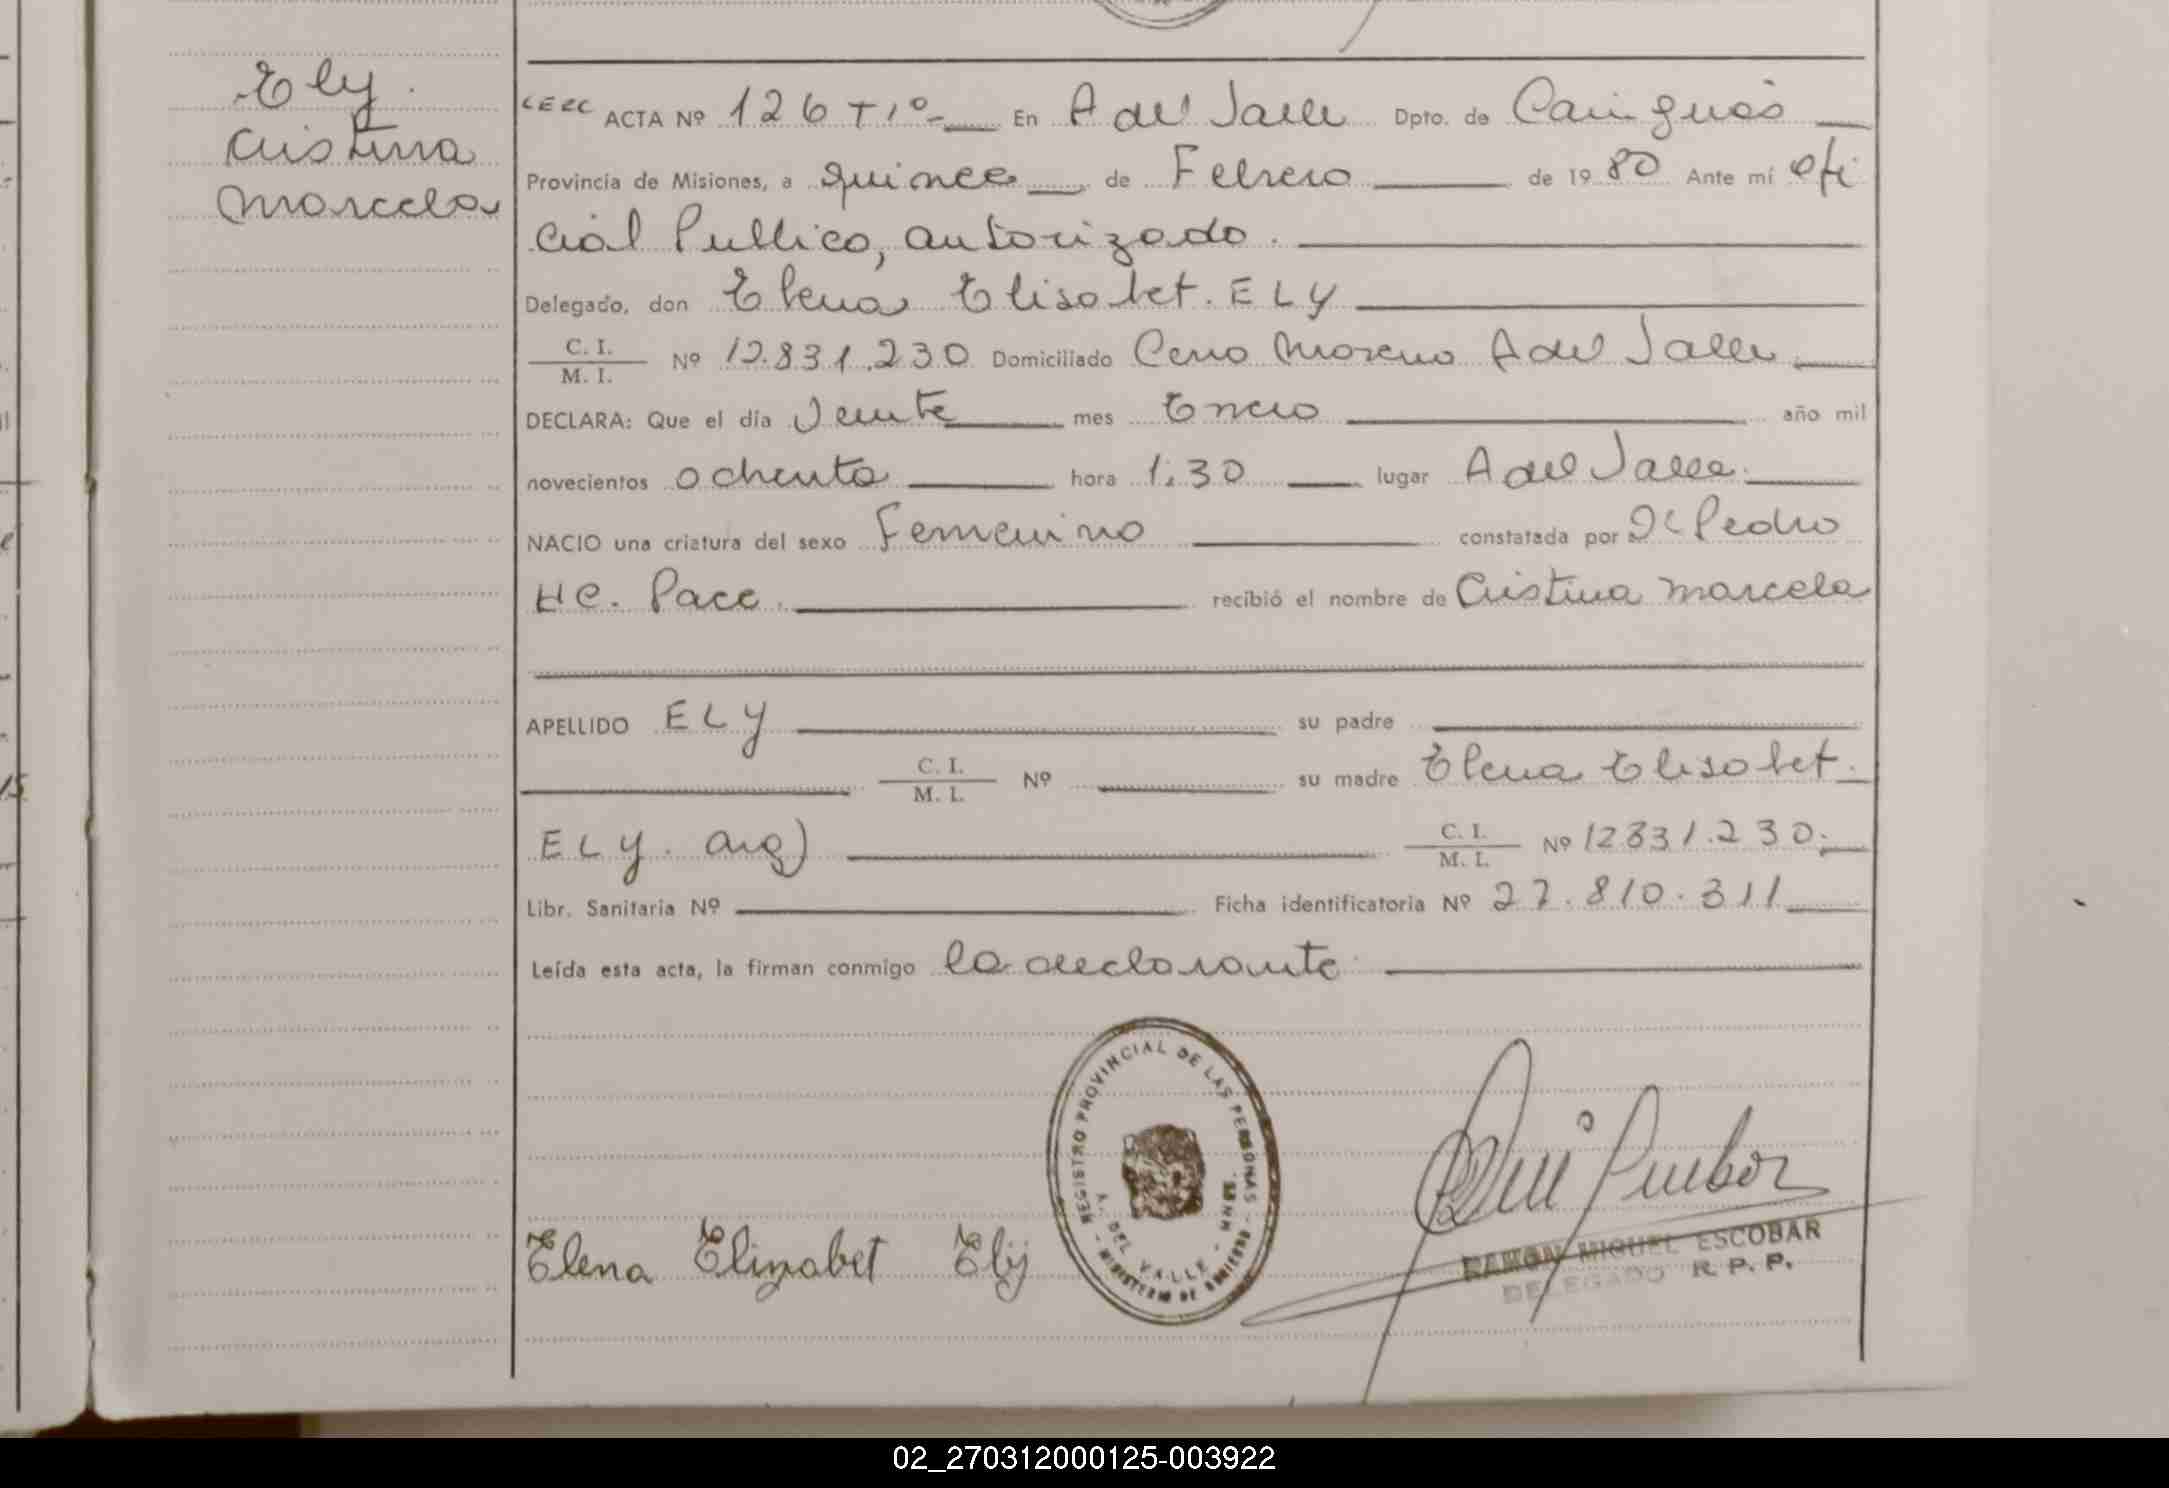 Ely.
Cristina
Marcela
ACTA Nº 126 T 1º En A del Valle Dpto. de Cainguás
Provincia de Misiones, a quince de Febrero de 1980 Ante mí ofi
cial Publico, autorizado.
Delegado, don Elena Elisabet. ELY
C. I.
M. I. Nº 12.831.230 Domiciliado Cerro Moreno A del Valle
DECLARA: Que el día Veinte mes Enero año mil
novecientos ochenta hora 1.30 lugar A del Valle.
NACIO una criatura del sexo Femenino constatada por Dr Pedro
HC. Pace. recibió el nombre de Cristina Marcela
APELLIDO ELY su padre
C. I.
M. I. Nº su madre Elena Elisabet.
ELY. Arg)
C. I.
M. I. Nº 12831.230.
Libr. Sanitaria Nº Ficha identificatoria Nº 27.810.311
Leída esta acta, la firman conmigo la declarante
REGISTRO PROVINCIAL DE LAS PERSONAS
A. DEL VALLE - MNES.
- MINISTERIO DE GOBIERNO -
Elena Elizabet Ely
RAMON MIGUEL ESCOBAR
DELEGADO R. P. P.
02_270312000125-003922